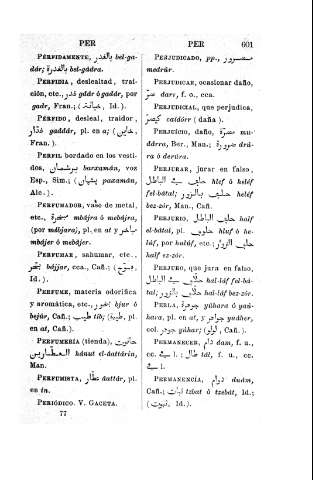 PER
PERFIDAMENTE, بالغدر bel-ga-
dár; بالغدرة bel-gádra.
PERFIDIA, deslealtad, trai-
ción, etc., غدر gádr ó gadár, por
gadr, Fran.; (خيانة, Id.).
PERFIDO, desleal, traidor,
غدّار gaddár, pl. en a; (خاين,
Fran.).
PERFIL bordado en los vesti-
dos, برشمان barxamán, voz
Esp., Sim.; (پشپان paxamán,
Alc.).
PERFUMADOR, vaso de metal,
etc., مبخرة mbájra ó mebájra,
(por mábjara), pl. en at y مباخر
mbájer ó mebájer.
PERFUMAR, sahumar, etc.,
بخّر bájjar, cca., Cañ.;
Id.).
PERFUME, materia odorífica
y aromática, etc., بخور bjur ó
bejúr, Cañ.; طيب tib; (طيبة, pl.
en at, Cañ.).
PERFUMERÍA (tienda), حانوت
العطارين hánut el-âattárin,
Man.
PERFUMISTA, عطّار âattár, pl.
en in.
PERIÓDICO. V. GACETA.
77
PER 601
مضرور, pp.,
madrúr.
PERJUDICAR, ocasionar daño,
ضرّ darr, f. o., cca.
PERJUDICIAL, que perjudica,
caidórr (daña).
PERJUICIO, daño, مضرّة mu-
dárra, Ber., Man.; ضرورة drú-
ra ó derúra.
PERJURAR, jurar en falso,
حلف في الباطل hlef ó heléf
fel-bátal; حلف بالزور heléf
bez-zór, Man., Cañ.
PERJURIO, حلف الباطل half
el-bátal, pl. حلوف hluf ó he-
lúf, por hulúf, etc.; حلف الزور
half ez-zór.
PERJURO, que jura en falso,
حلّاف بالباطل hal-láf fel-bá-
tal; حلّاف بالزور hal-láf bez-zór.
PERLA, جوهرة yúhara ó yaú-
hara, pl. en at, y جواهر yuáher,
col. جوهر yúhar; (لولو, Cañ.).
PERMANECER, دام dam, f. u.,
cc. في l.; طال tál, f. u., cc.
في l.
PERMANENCIA, دوام duám,
Cañ.; ثبات tzbat ó tzebát, Id.;
(ثبوت, Id.).